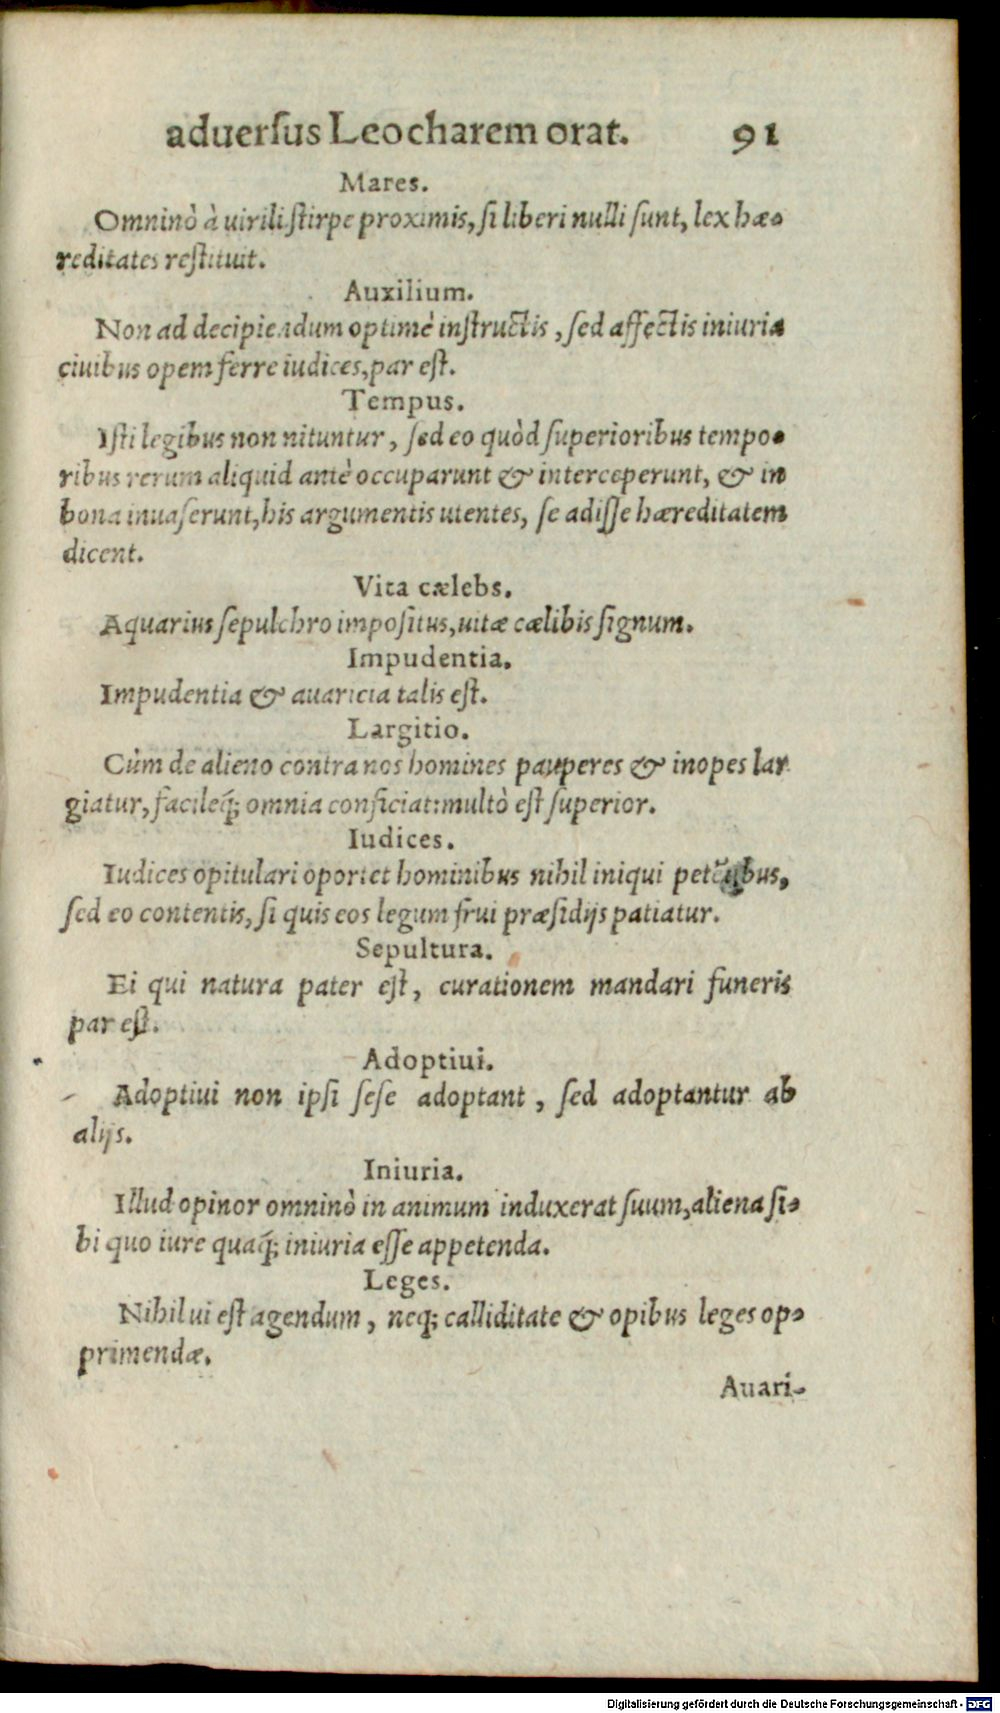 aduerſus Leocharem orat. 91
Mares.
Omninò à uirili ſtirpe proximis, ſi liberi nulli ſunt, lex hæ-
reditates reſtituit.
Auxilium.
Non ad decipiendum optimè inſtructis, ſed affectis iniuria
ciuibus opem ferre iudices, par eſt.
Tempus.
Iſti legibus non nituntur, ſed eo quòd ſuperioribus tempo-
ribus rerum aliquid antè occuparunt & interceperunt, & in
bona inuaſerunt, his argumentis utentes, ſe adiſſe hæreditatem
dicent.
Vita cælebs.
Aquarius ſepulchro impoſitus, uitæ cælibis ſignum.
Impudentia.
Impudentia & auaricia talis eſt.
Largitio.
Cùm de alieno contra nos homines pauperes & inopes lar
giatur, facileq́; omnia conficiat: multò eſt ſuperior.
Iudices.
Iudices opitulari oportet hominibus nihil iniqui petẽtibus,
ſed eo contentis, ſi quis eos legum frui præſidijs patiatur.
Sepultura.
Ei qui natura pater eſt, curationem mandari funeris
par eſt.
Adoptiui.
Adoptiui non ipſi ſeſe adoptant, ſed adoptantur ab
alijs.
Iniuria.
Illud opinor omninò in animum induxerat ſuum, aliena ſi-
bi quo iure quaq́; iniuria eſſe appetenda.
Leges.
Nihil ui eſt agendum, neq; calliditate & opibus leges op-
primendæ.
Auari-
Digitalisierung gefördert durch die Deutsche Forschungsgemeinschaft - DFG